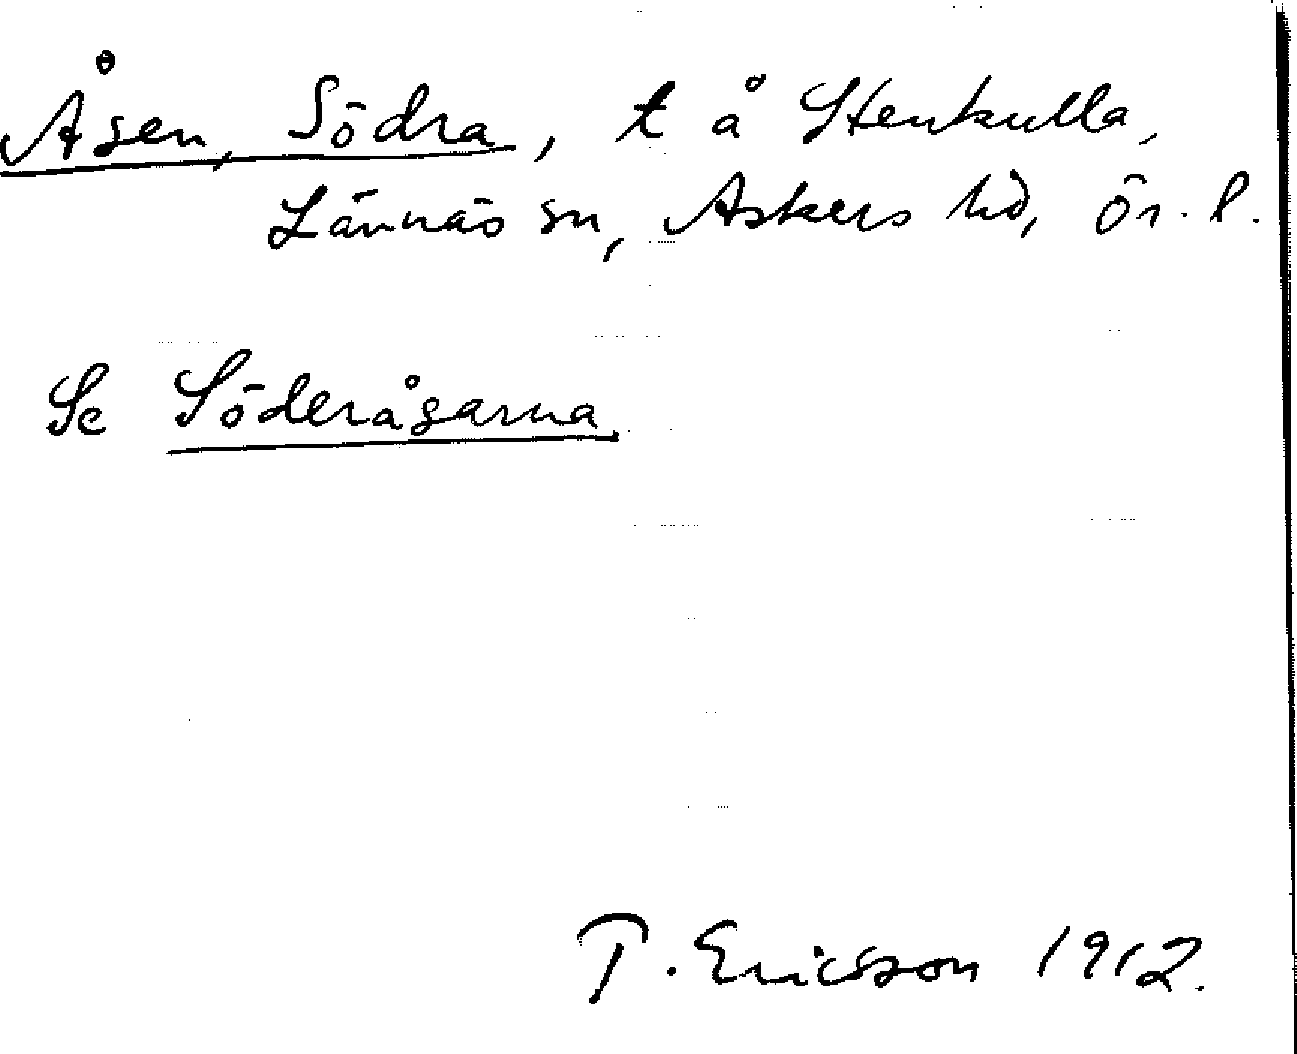 Åsen, Södra, t å Stenkulla,
Lännäs sn, Askers hd, Ör. l.
Se Söderåsarna.
T. Ericsson 1912.